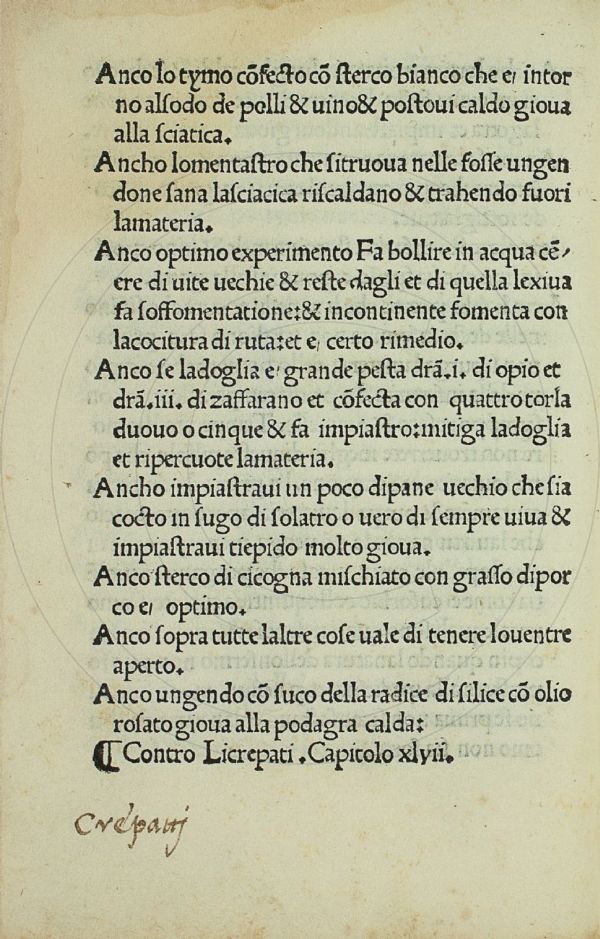 Anco lo tymo cõfecto cõ ſterco bianco che e, intor
no alſodo de polli & uino& poſtoui caldo gioua
alla ſciatica.
Ancho lomentaſtro che ſitruoua nelle foſſe ungen
done ſana laſciacica riſcaldano & trahendo fuori
lamateria.
Anco optimo experimento Fa bollire in acqua cē⸗
ere di uite uechie & reſte dagli et di quella lexiua
fa ſoffomentatione:& incontinente fomenta con
lacocitura di ruta:et e, certo rimedio.
Anco ſe ladoglia e, grande peſta drã.i. di opio et
drã.iii. di zaffarano et cõfecta con quattro torla
duouo o cinque & fa impiaſtro:mitiga ladoglia
et ripercuote lamateria.
Ancho impiaſtraui un poco dipane uechio che ſia
cocto in ſugo di ſolatro o uero di ſempre uiua &
impiaſtraui tiepido molto gioua.
Anco ſterco di cicogna miſchiato con graſſo dipor
co e, optimo.
Anco ſopra tutte laltre coſe uale di tenere louentre
aperto.
Anco ungendo cõ ſuco della radice di ſilice cõ olio
roſato gioua alla podagra calda:
¶ Contro Licrepati .Capitolo xlvii.
Crépatij